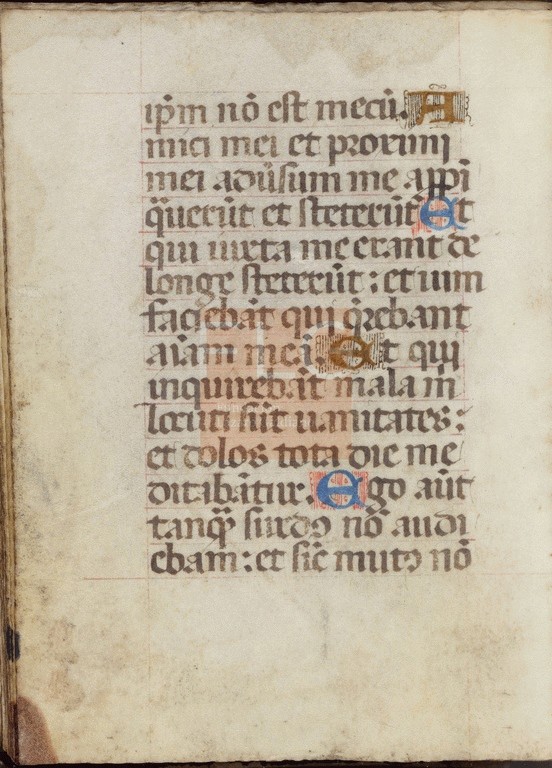 ip̄m nō est mecū. A
mici mei et proximi
mei adūsum me app̄i
q̄uerūt et steterūt Et
qui iuxta me erant de
longe steterūt : et uim
faciebāt qui q̄rebant
aīam meā. Et qui
inquirebāt mala m̄
locuti sūt uanitates :
et dolos tota die me
ditabātur. Ego aūt
tanq̄ȝ surdꝰ nō audi
ebam : et sic̄ mutꝰ nō